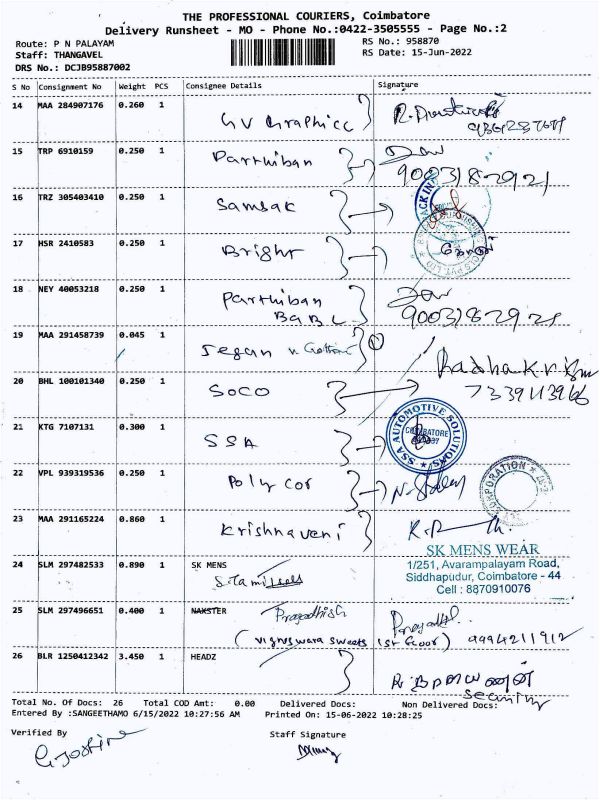 THE PROFESSIONAL COURIERS, Coimbatore
Delivery Runsheet - MO - Phone No.:0422-3505555 - Page No.:2
Route: P N PALAYAM
Staff: THANGAVEL
DRS No.: DCJB95887002
RS No.: 958870
RS Date: 15-Jun-2022
S No Consignment No Weight PCS Consignee Details Signature
14 MAA 284907176 0.260 1 GV Graphicc
15 TRP 6910159 0.250 1 Parthiban 9003182921
16 TRZ 305403410 0.250 1 Samsak
17 HSR 2410583 0.250 1 Bright
18 NEY 40053218 0.250 1 Parthiban 9003182921
BABL
19 MAA 291458739 0.045 1 Jegan
20 BHL 100101340 0.250 1 SOCO Radhakrishn
7339113966
21 KTG 7107131 0.300 1 SSA
SSA AUTOMOTIVE SOLUTIONS
COIMBATORE
22 VPL 939319536 0.250 1 Polycor
CORPORATION
23 MAA 291165224 0.860 1 Krishnaveni
24 SLM 297482533 0.890 1 SK MENS
S.Tamil
SK MENS WEAR
1/251, Avarampalayam Road,
Siddhapudur, Coimbatore - 44
Cell : 8870910076
25 SLM 297496651 0.400 1 NAKSTER Pragadhish
(Vigneswara sweets 1st floor) 9994211912
26 BLR 1250412342 3.450 1 HEADZ
Security
Total No. Of Docs: 26 Total COD Amt: 0.00 Delivered Docs: Non Delivered Docs:
Entered By :SANGEETHAMO 6/15/2022 10:27:56 AM Printed On: 15-06-2022 10:28:25
Verified By Staff Signature